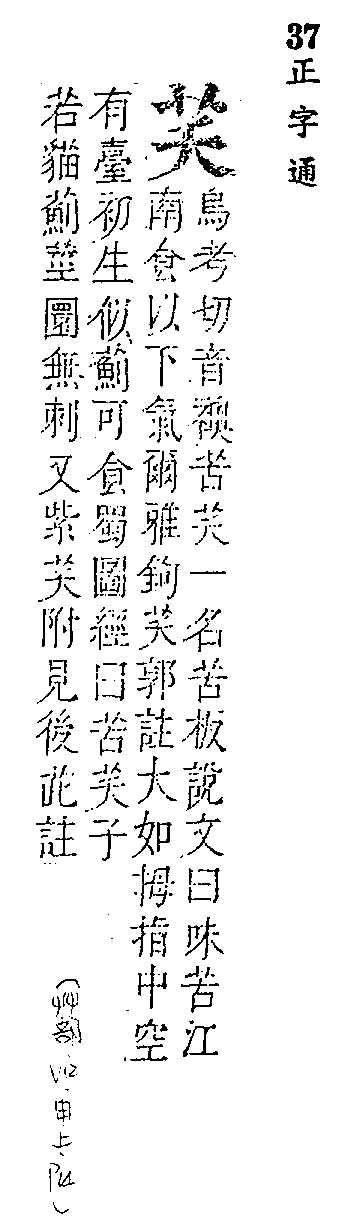 37 正字通
芺
烏考切音襖苦芺一名苦板說文曰味苦江
南食以下氣爾雅鉤芺郭註大如拇指中空
有臺初生似薊可食蜀圖經曰苦芺子
若貓薊莖圓無刺又紫芺附見後茈註